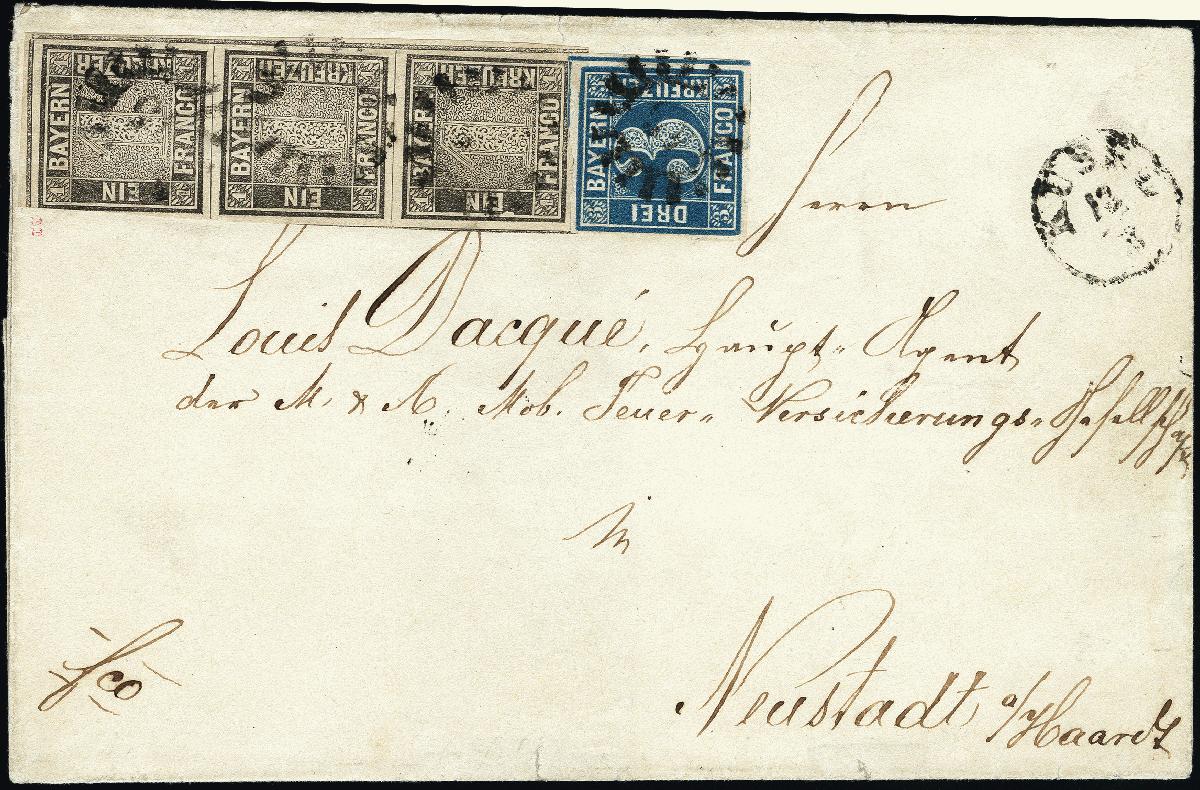 KREUZER KREUZER KREUZER KREUZER
BAYERN 1 FRANCO BAYERN 1 FRANCO BAYERN 1 FRANCO BAYERN 3 FRANCO
EIN EIN EIN DREI
KUSEL
12
Herrn
Louis Dacqué, Haupt-Agent
der M. & A. Mob. Feuer-Versicherungs-Gesellschaft
in
Neustadt a/Haardt
fco